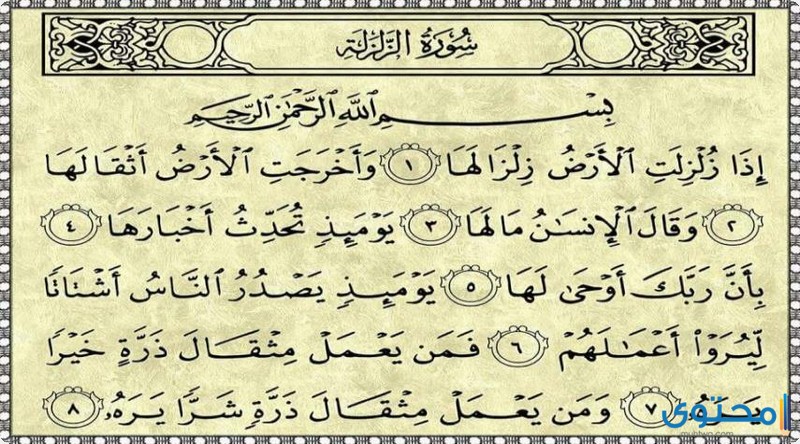 سُورَةُ الزَّلْزَلَةِ
بِسْمِ اللَّهِ الرَّحْمَٰنِ الرَّحِيمِ
إِذَا زُلْزِلَتِ الْأَرْضُ زِلْزَالَهَا ١ وَأَخْرَجَتِ الْأَرْضُ أَثْقَالَهَا
٢ وَقَالَ الْإِنسَٰنُ مَا لَهَا ٣ يَوْمَئِذٍ تُحَدِّثُ أَخْبَارَهَا ٤
بِأَنَّ رَبَّكَ أَوْحَىٰ لَهَا ٥ يَوْمَئِذٍ يَصْدُرُ النَّاسُ أَشْتَاتًا
لِّيُرَوْا أَعْمَٰلَهُمْ ٦ فَمَن يَعْمَلْ مِثْقَالَ ذَرَّةٍ خَيْرًا
يَرَهُۥ ٧ وَمَن يَعْمَلْ مِثْقَالَ ذَرَّةٍ شَرًّا يَرَهُۥ ٨
محتوى
muhtwa.com